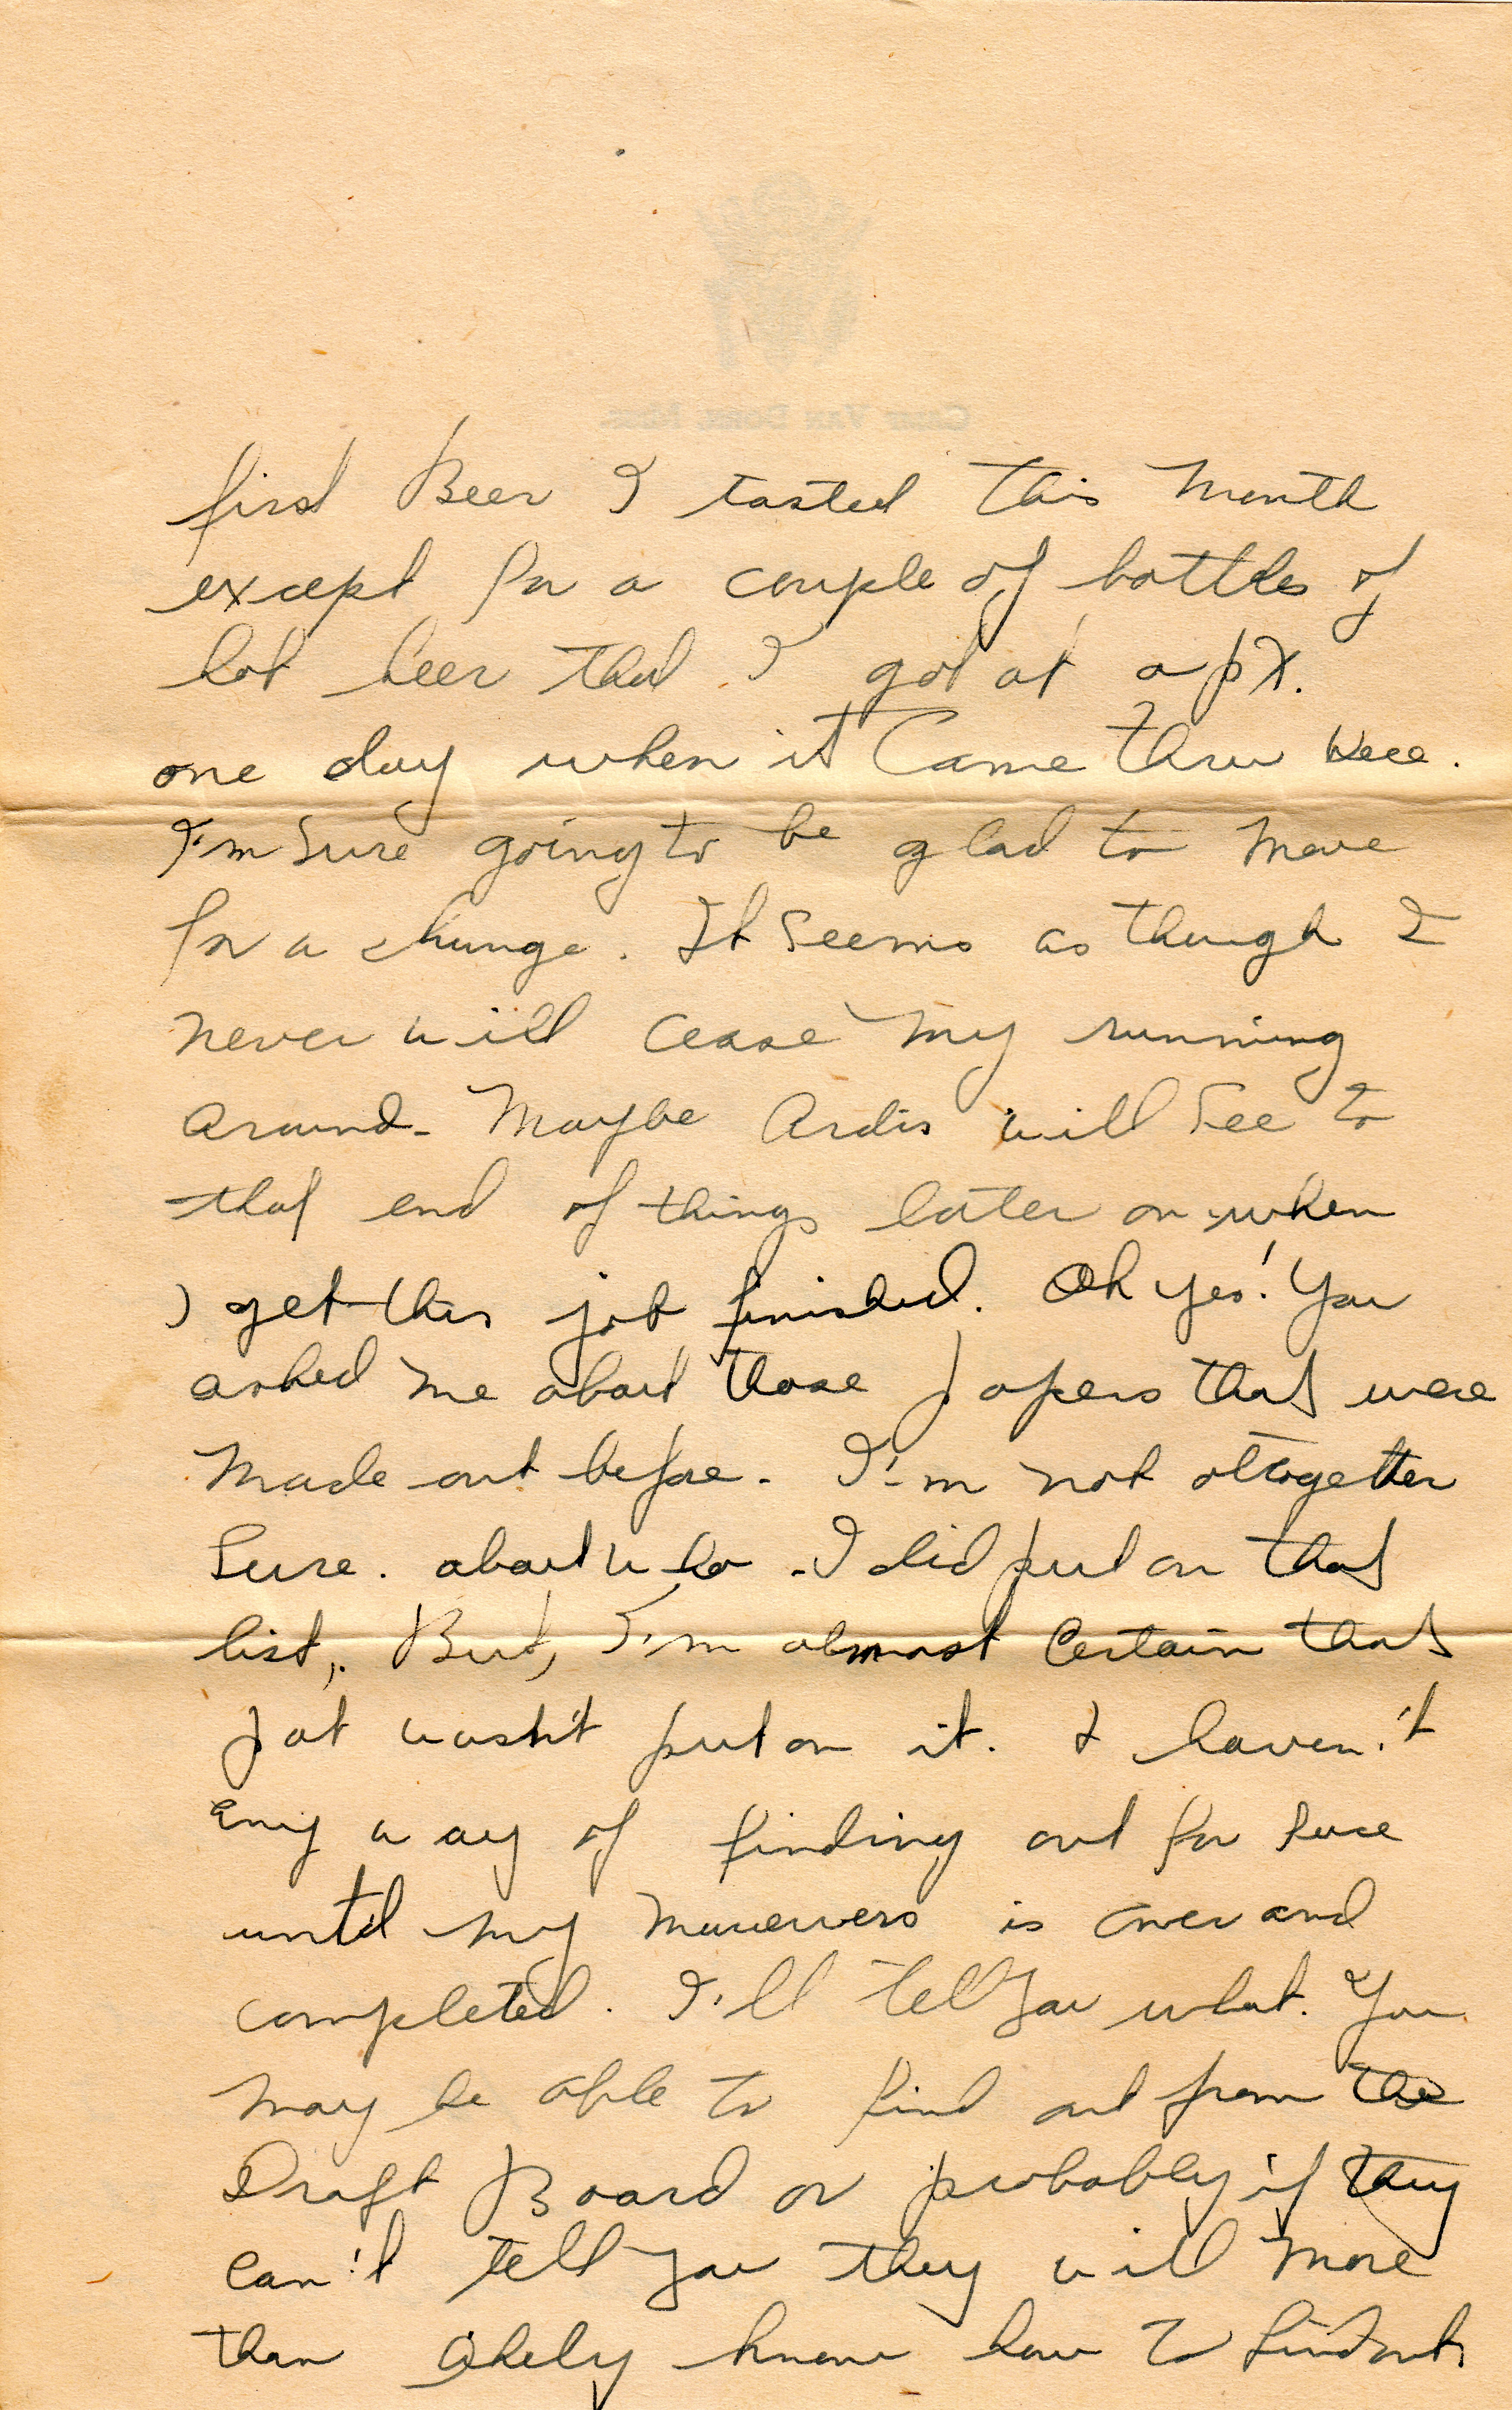 CAMP VAN DORN, MISS.
first Beer I tasted this month
except for a couple of bottles of
hot beer that I got at a px.
one day when it Came thru here.
I'm Sure going to be glad to move
for a change. It Seems as though I
never will cease my running
around. Maybe Ardis will See to
that end of things later on when
I get this job finished. Oh yes! You
asked me about those papers that were
made out before. I'm not altogether
Sure. about who I did put on that
list,. But, I'm almost Certain that
Pat wasn't put on it. I haven't
any way of finding out for sure
until my manuevers is over and
completed. I'll tell you what. You
may be able to find out from the
Draft Board or probably if they
can't tell you they will more
than likely know how to find out